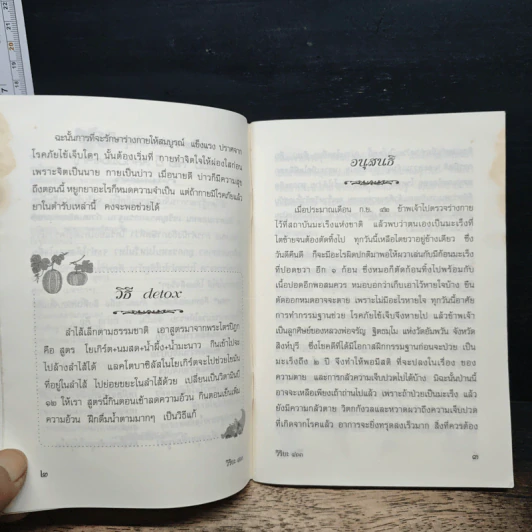 ฉะนั้นการที่จะรักษาร่างกายให้สมบูรณ์ แข็งแรง ปราศจาก
โรคภัยไข้เจ็บใดๆ นั้นต้องเริ่มที่ กายทำจิตใจให้ผ่องใสก่อน
เพราะจิตเป็นนาย กายเป็นบ่าว เมื่อนายดี บ่าวก็มีความสุข
ถึงตอนนี้ หยูกยาอะไรก็หมดความจำเป็น แต่ถ้ากายมีโรคภัยแล้ว
ยาในตำรับเหล่านี้ คงจะพอช่วยได้
วิธี detox
ลำไส้เล็กตามธรรมชาติ เอาสูตรมาจากพระไตรปิฎก
คือ สูตร โยเกิร์ต+นมสด+น้ำผึ้ง+น้ำมะนาว กินเข้าไปจะ
ไปล้างลำไส้ได้ แลคโตบาซิลัสในโยเกิร์ตจะไปช่วยไขมัน
ที่อยู่ในลำไส้ ไปย่อยขยะในลำไส้ด้วย เปลี่ยนเป็นวิตามินบี
๑๒ ให้เรา สูตรนี้กินตอนเช้าลดความอ้วน กินตอนเย็นเพิ่ม
ความอ้วน ฝึกดื่มน้ำตามมากๆ เป็นวิธีแก้
๒
อนุสนธิ
เมื่อประมาณเดือน ก.ย. ๔๒ ข้าพเจ้าไปตรวจร่างกาย
ไว้ที่สถาบันมะเร็งแห่งชาติ แล้วพบว่าตนเองเป็นมะเร็งที่
ไตซ้ายจนต้องตัดทิ้งไป ทุกวันนี้เหลือไตขวาอยู่ข้างเดียว ซึ่ง
วันดีคืนดี ก็จะมีอะไรผิดปกติมาพอให้ผวาเล่นกับมีก้อนมะเร็ง
ที่ปอดขวา อีก ๑ ก้อน ซึ่งหมอก็ตัดก้อนทิ้งไปพร้อมกับ
เนื้อปอดอีกพอสมควร หมอบอกว่าเก็บเอาไว้หายใจบ้าง ขืน
ตัดออกหมดอาจจะตาย เพราะไม่มีอะไรหายใจ ทุกวันนี้อาศัย
การทำกรรมฐานช่วย โรคภัยไข้เจ็บจึงหายไป แล้วข้าพเจ้า
เป็นลูกศิษย์ของหลวงพ่อจรัญ ฐิตธมฺโม แห่งวัดอัมพวัน จังหวัด
สิงห์บุรี ซึ่งโชคดีที่ได้มีโอกาสฝึกกรรมฐานก่อนจะป่วย เป็น
มะเร็งถึง ๒ ปี จึงทำให้พอมีสติ ที่จะปลงในเรื่อง ของ
ความตาย และการกลัวความเจ็บปวดไปได้บ้าง มิฉะนั้นป่านนี้
อาจจะเหลือเพียงเถ้าถ่านไปแล้ว เพราะถ้าป่วยเป็นมะเร็ง แล้ว
ยังมีความกลัวตาย วิตกกังวลและหวาดผวาถึงความเจ็บปวด
ที่เกิดจากโรคแล้ว อาการจะยิ่งทรุดลงเร็วมาก สิ่งที่ควรต้อง
๓